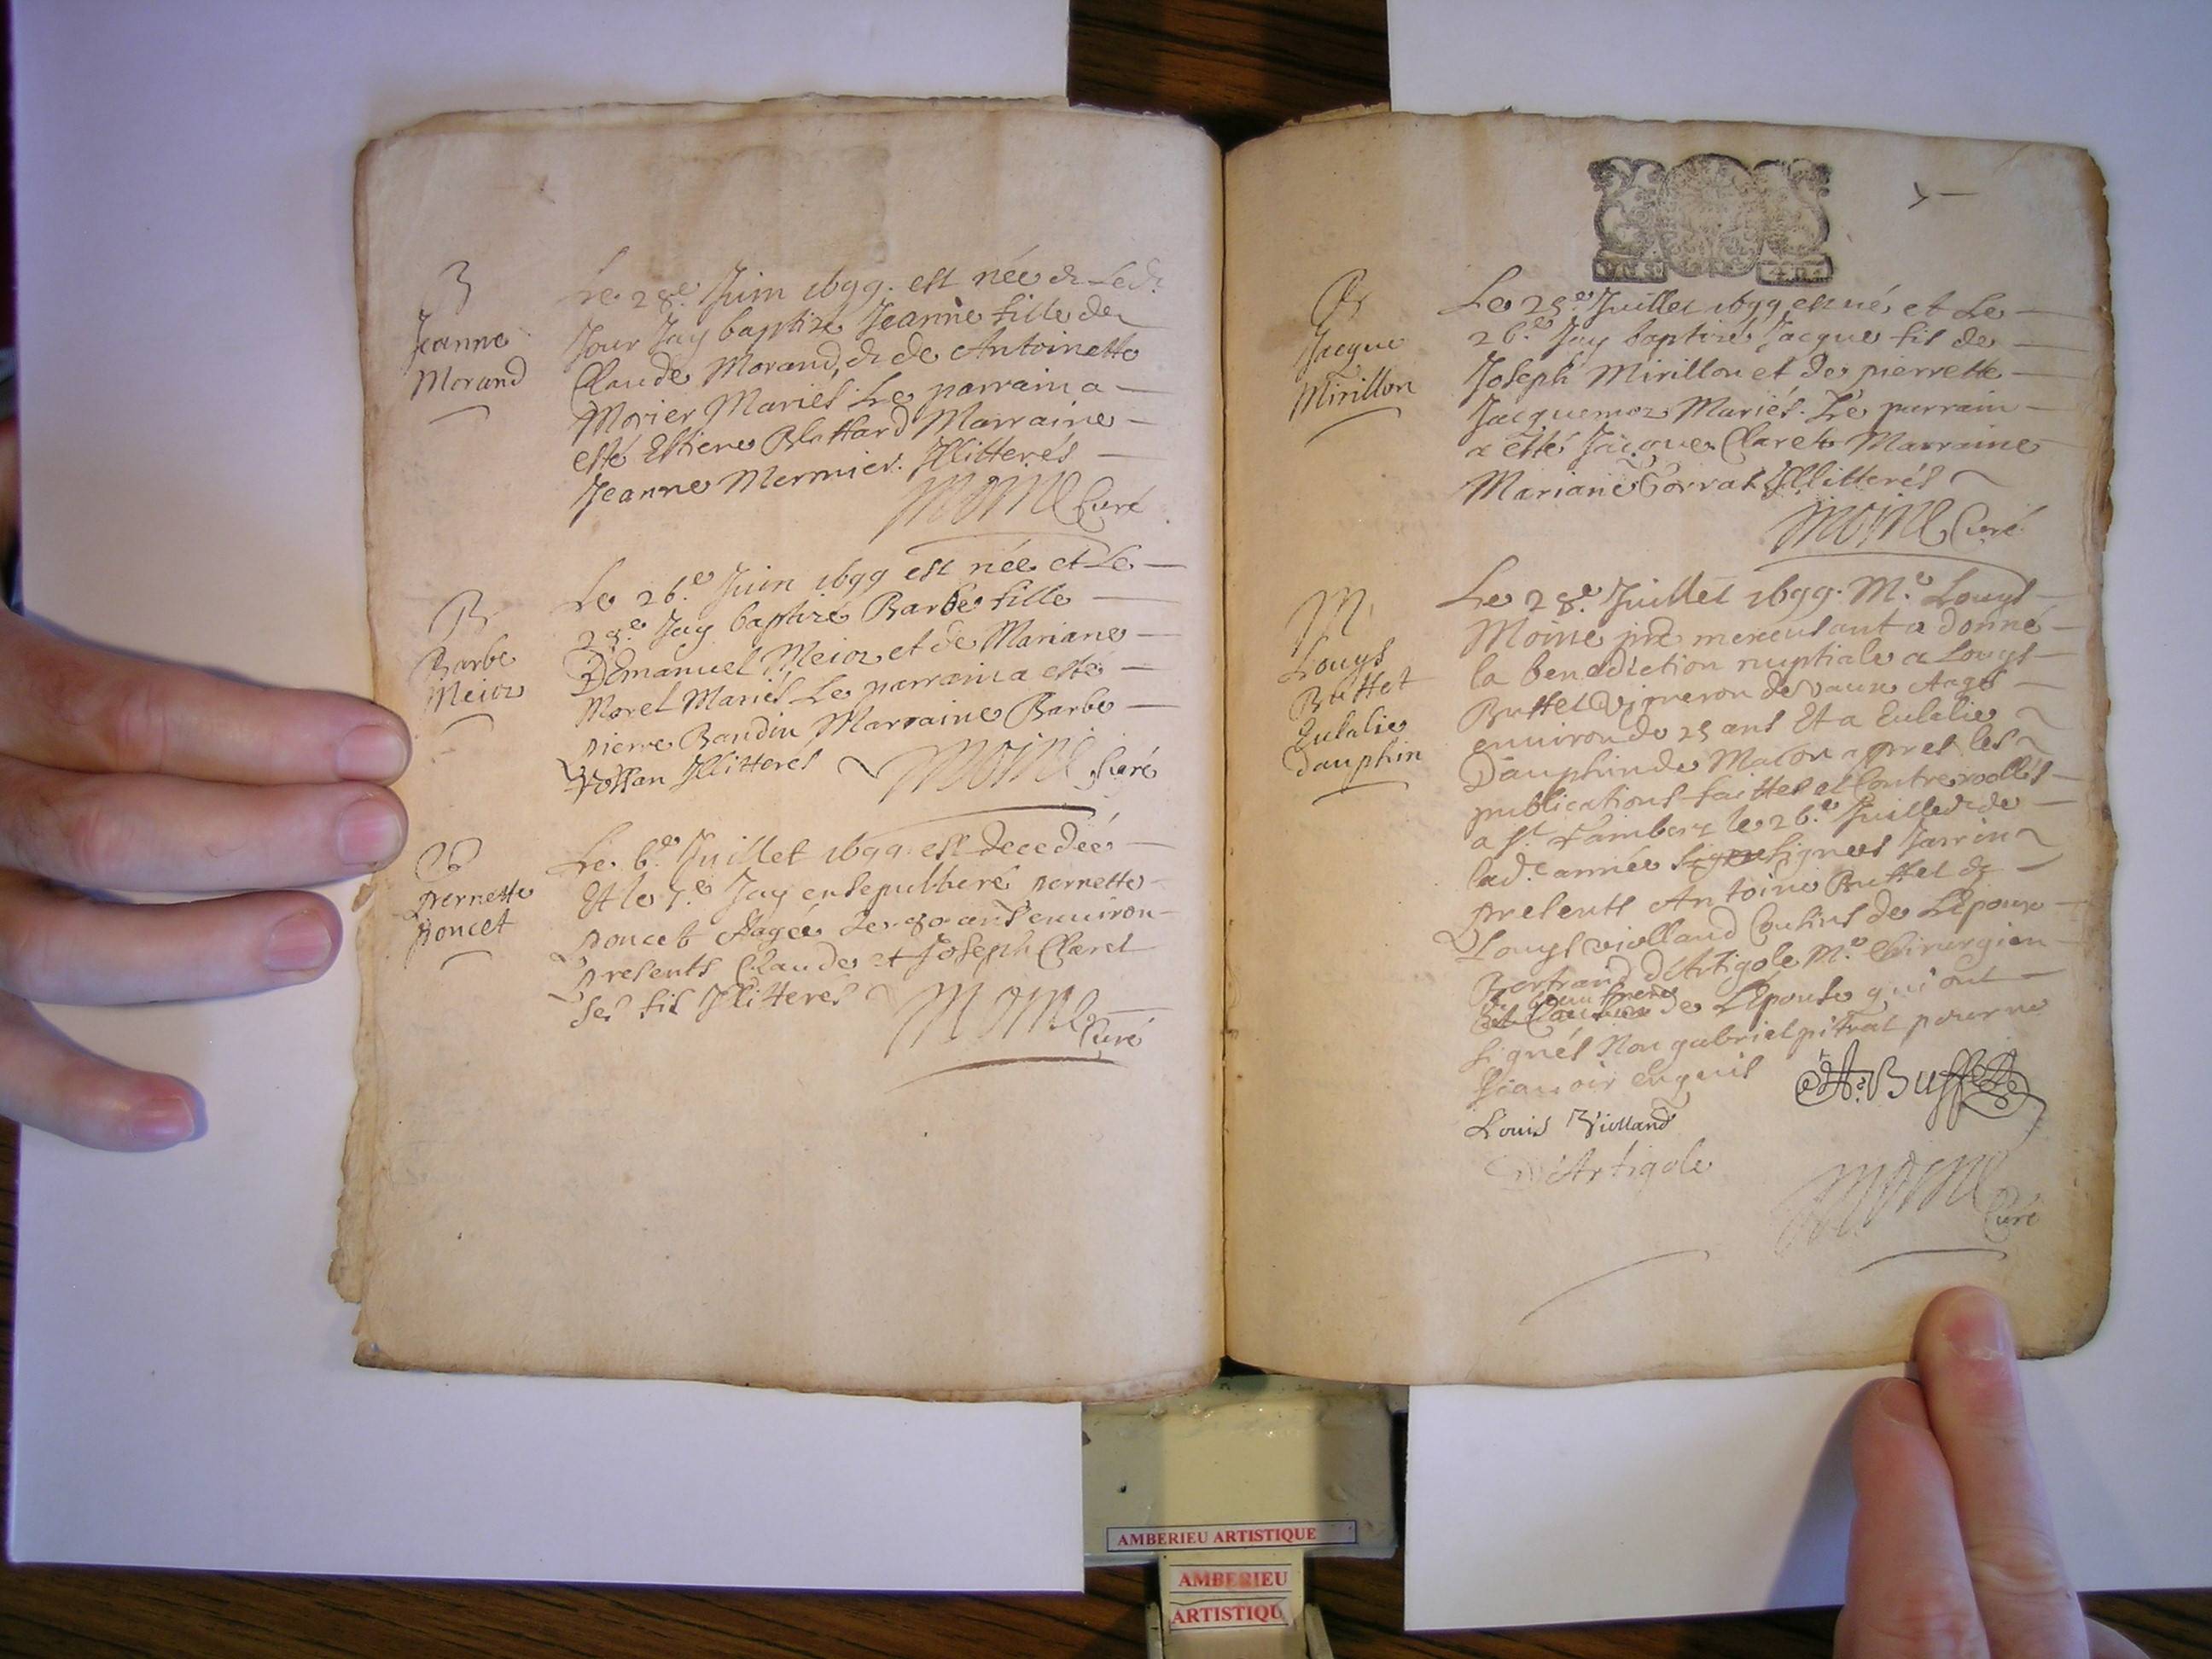 B
Jeanne
Morand
Le 28.e Juin 1699. est née & Led.
Jour Jay baptizé Jeanne fille de
Claude Morand, & de Antoinette
Morier Mariés Le parrain a
esté Estiene Blattard Marraine
Jeanne Mermier. Illitterés
Moine Curé
B
Barbe
Meioz
Le 26.e Juin 1699 est née et Le
28.e Jay baptizé Barbe fille
D'Emanuel Meioz et de Mariane
Morel Mariés Le parrain a esté
pierre Baudin Marraine Barbe
Illitterés
Moine Curé
pernette
poncet
Le 6.e Juillet 1699. est decedée
Et le 7.e Jay ensepulturé pernette
poncet Aagée de 80 ans environ
presents Claude et Joseph Claret
ses fils Illiterés
Moine
Curé
B
Jacque
Mirillon
Le 25.e Juillet 1699 est né et Le
26.e Jay baptizé Jacque fils de
Joseph Mirillon et de pierrette
Jacquemoz Mariés. Le parrain
a esté Jacque Claret Marraine
Mariane Illitterés
Moine Curé
M
Louys
Buffet
Eulalie
dauphin
Le 28.e Juillet 1699. M.e Louys
Moine pre me presentant a donné
la benediction nuptiale a Louys
Buffet Vigneron de Vaux Aagé
environ de 25 ans Et a Eulalie
Dauphin de Macon appres les
publications faittes et Controollés
a St. Lambert le 26.e Juillet de
lad.e année signes Jarrin
presents Antoine Buffet &
Louys violland Cousins de L'Epoux
Bertrand d'Artigole M.e Chirurgien
beau frere de L'Epouse qui ont
signés Non gabriel pitrat pour ne
scauoir enquis
A. Buffet
Louis Violland
D'Artigole
Moine
Curé
AMBERIEU ARTISTIQUE
AMBERIEU
ARTISTIQU